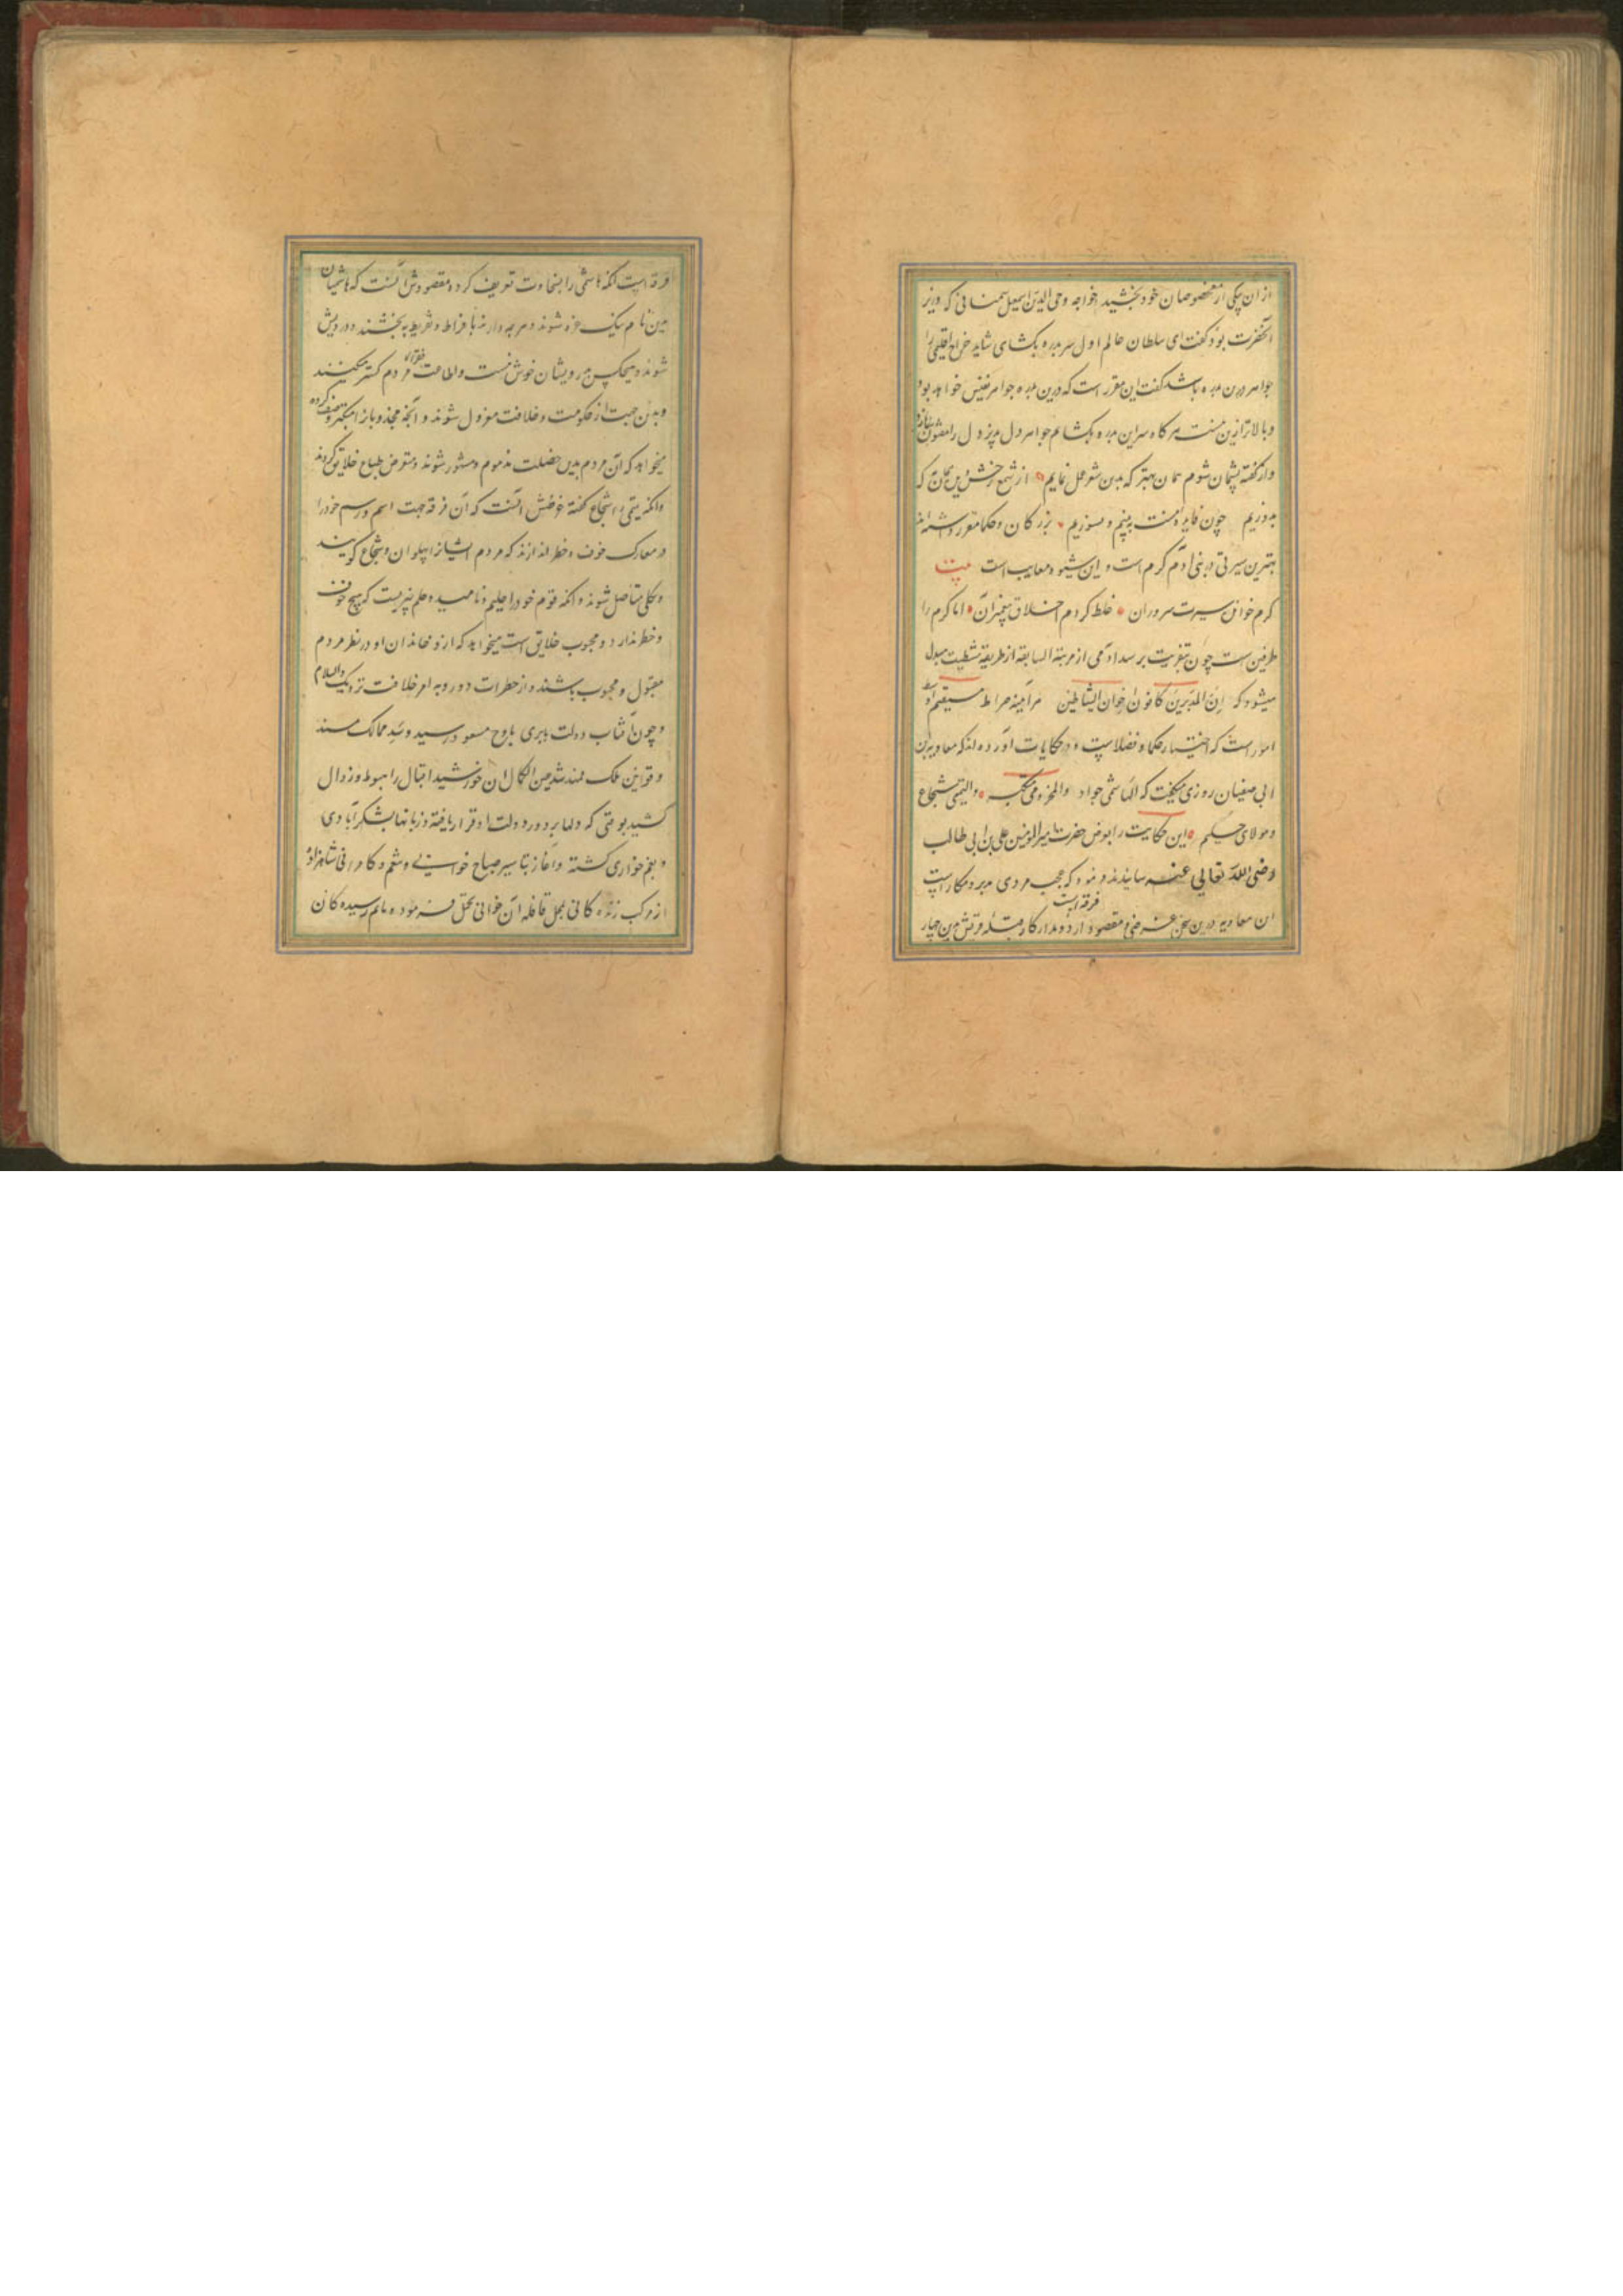 ازان یکی از مخصوصان خود بخشید خواجه وجی الدین اسمعیل سمنانی که وزیر
آنحضرت بود گفت ای سلطان عالم اول سر بدره بکشای شاید خراج اقلیمی را
جواهر درین بدره باشد گفت این مقرر است که درین بدره جواهر نفیس خواهد بود
و بالاتر ازین نیست هر گاه سر این بدره بکشایم جواهر دل پذیر دل را مفتون سازد
و از گفته پشیمان شوم همان بهتر که بدین شعر عمل نمایم از شمع رخش دین همان که
بدوزیم چون فایده نیست ببینم و بسوزیم بزرکان و حکما مقرر داشته اند
بهترین سیرتی در بنی آدم کرم است و این شیوه معایب است بیت
کرم خوانی سیرت سروران غلط کردم اخلاق پیغمبران اما کرم را
طرفین است چون بتفریت برسد آدمی از مرتبة السابقه از طریقه شیطنت مبدل
میشود که ان المبذرین کانوا اخوان الشیاطین هر آینه صراط مستقیم اوسط
امور است که اختیار حکما و فضلاست و در حکایات آورده اند که معاویه بن
ابی سفیان روزی میگفت که الهاشمی جواد والمخزومی متکبر والتیمی شجاع
و مولای حلیم این حکایت را بعرض حضرت امیر المومنین علی بن ابی طالب
رضی الله تعالی عنه رسانیدند فرمود که عجب مردی مدبر و مکار است
ان معاویه درین سخن غرضی و مقصود دارد و مدار کار قبیله قریش بدین چهار
فرقه است
فرقه است انکه هاشمی را بسخاوت تعریف کرده مقصودش آنست که هاشمیان
بدین نام نیک غره شوند و هر چه دارند با فراط و تفریط به بخشند و درویش
شوند و هیچکس بدرویشان خوش نیست و اطاعت فقرا مردم کمتر میکنند
و بدین جهت از حکومت و خلافت معزول شوند و آنچه مخذوبان را متکبر وصف کرده
میخواهد که آن مردم بدین خصلت مذموم و مشهور شوند و متعرض طباع خلایق گردند
و انکه تیمی را شجاع گفته غرضش آنست که آن فرقه جهت اسم و رسم خود را
در معارک خوف و خطر اندازند که مردم ایشانرا پهلوان و شجاع گویند
و بکلی متاصل شوند و آنکه قوم خود را حلیم نامیده حلم چیزیست که هیچ خوف
و خطر ندارد و محبوب خلایق است میخواهد که او و خاندان او در نظر مردم
مقبول و محبوب باشند و از خطرات دور و به امر خلافت نزدیک والسلام
و چون آفتاب دولت بابری باوج مسعود رسید و سند ممالک مسند
و قوانین ملک ممهد شد عین الکمال آن خورشید اقبال را بهبوط و زوال
کشید بوقتی که دلها بر دور دولت او قرار یافته و زبانها بشکر آبادی
و بغم خواری گشته و آغاز تباشیر صباح خوش و تنعم و کامرانی شاهزاده
از مرکب زندگانی بمحل قافله آن خوانی تحمل فرموده ماتم رسیده کان